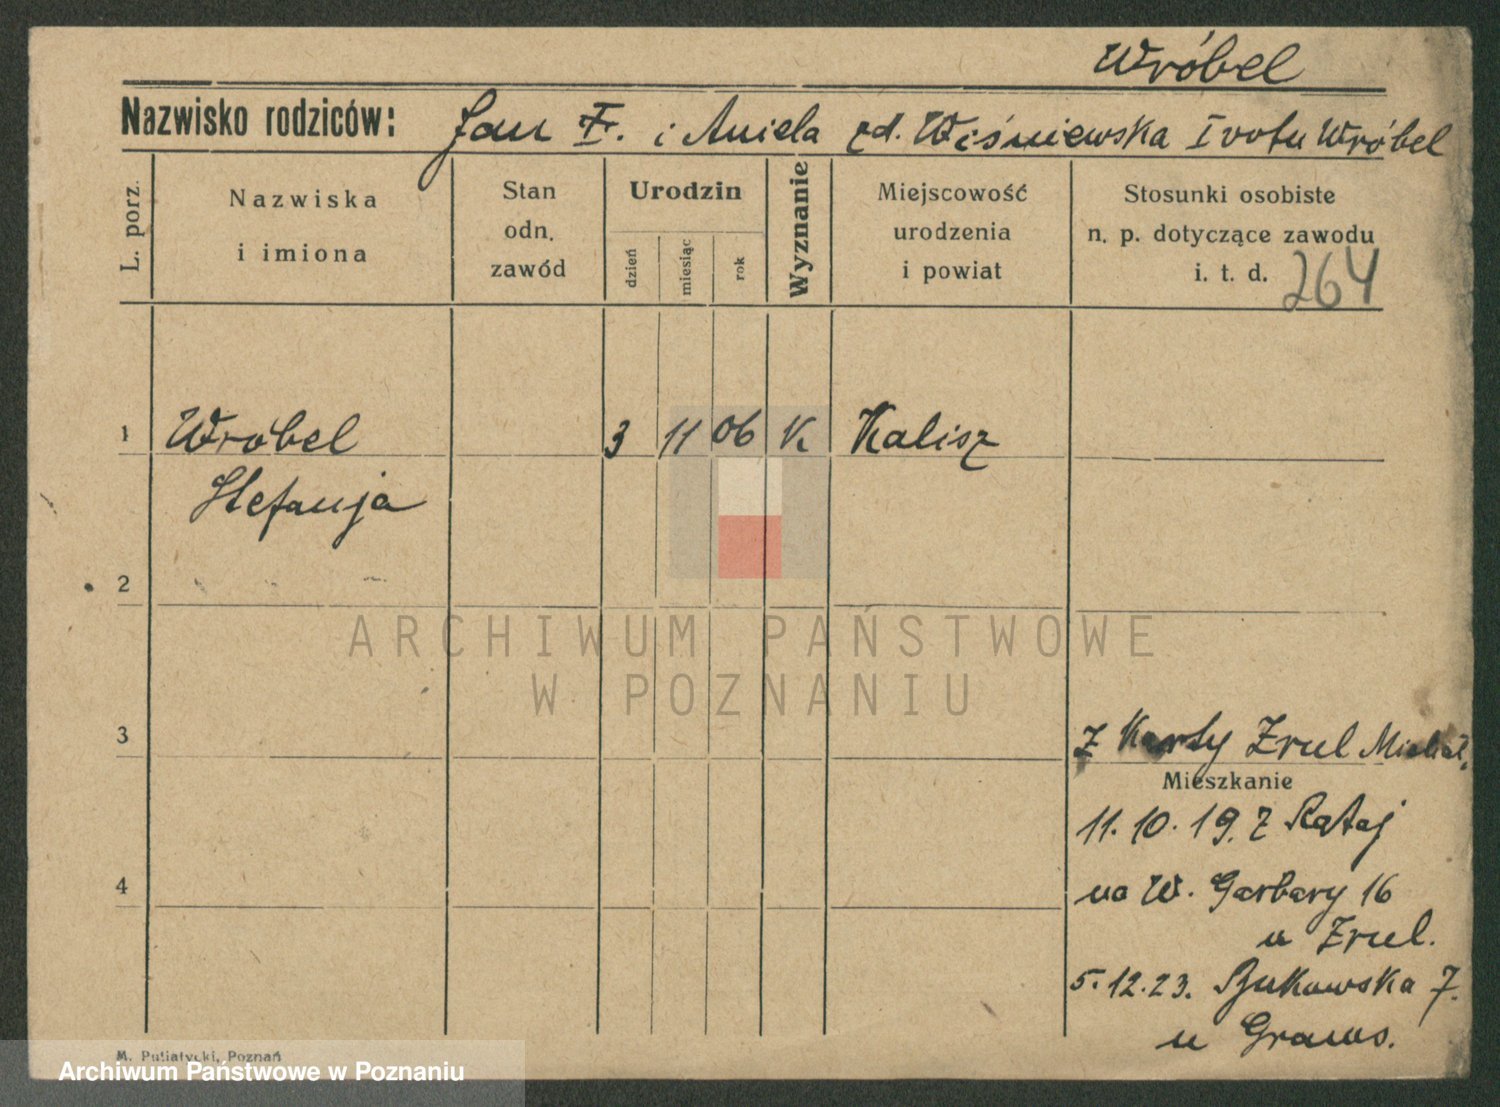 Wróbel
Nazwisko rodziców: Jan F. i Aniela zd. Wiśniewska I votu Wróbel
L. porz.
Nazwiska
i imiona
Stan
odn.
zawód
Urodzin
dzień
miesiąc
rok
Wyznanie
Miejscowość
urodzenia
i powiat
Stosunki osobiste
n. p. dotyczące zawodu
i. t. d. 264
1 Wrobel 3 11 06 K Kalisz
Stefanja
2
ARCHIWUM PAŃSTWOWE
W POZNANIU
3
z Karty Zrul Michał,
Mieszkanie
11.10.19. z Rataj
4
na W. Garbary 16
u Zrul.
5.12.23. Bukowska 7.
u Grams.
M. Putiatycki, Poznań
Archiwum Państwowe w Poznaniu